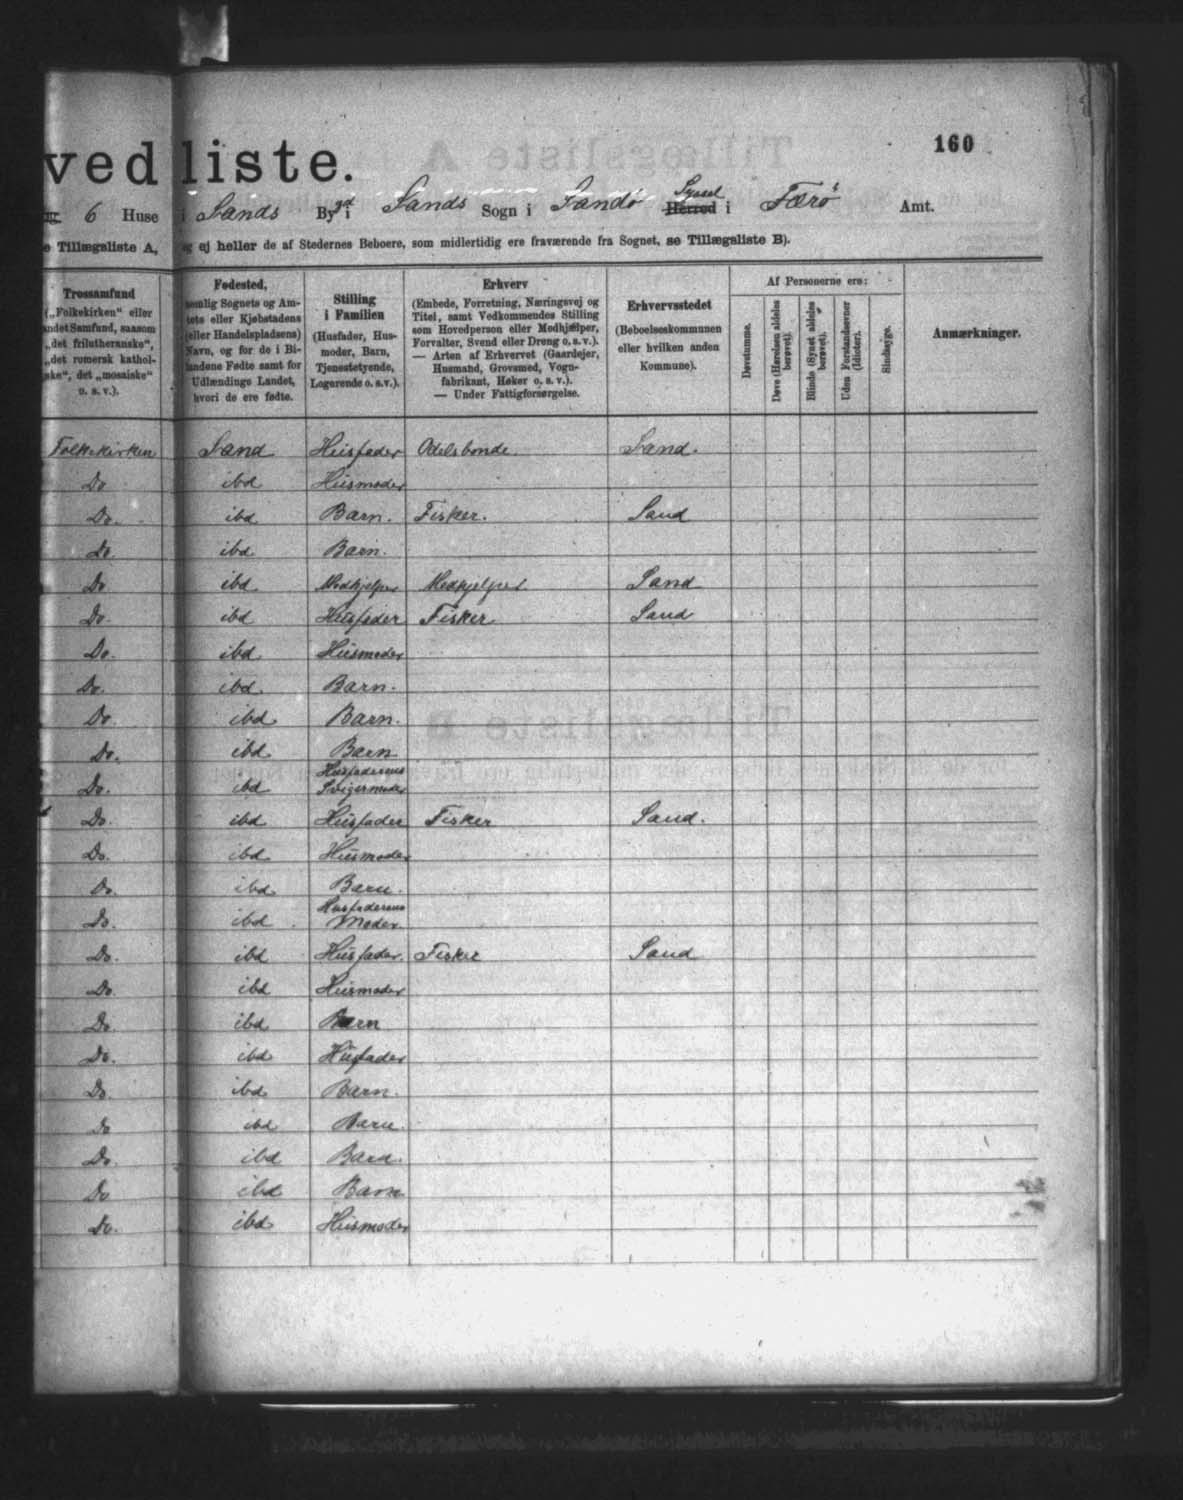 160
ved liste.
6 Huse i Sands Bygd i Sands Sogn i Sandø Herred Syssel i Færø Amt.
e Tillægsliste A, og ej heller de af Stedernes Beboere, som midlertidig ere fraværende fra Sognet, se Tillægsliste B).
Trossamfund
(„Folkekirken“ eller
andet Samfund, saasom
„det frilutheranske“,
„det romersk kathol-
ske“, det „mosaiske“
o. s. v.).
Fødested,
nemlig Sognets og Am-
tets eller Kjøbstadens
(eller Handelspladsens)
Navn, og for de i Bi-
landene Fødte samt for
Udlændinge Landet,
hvori de ere fødte.
Stilling
i Familien
(Husfader, Hus-
moder, Barn,
Tjenestetyende,
Logerende o. s. v.).
Erhverv
(Embede, Forretning, Næringsvej og
Titel, samt Vedkommendes Stilling
som Hovedperson eller Medhjælper,
Forvalter, Svend eller Dreng o. s. v.).
— Arten af Erhvervet (Gaardejer,
Husmand, Grovsmed, Vogn-
fabrikant, Høker o. s. v.).
— Under Fattigforsørgelse.
Erhvervsstedet
(Beboelseskommunen
eller hvilken anden
Kommune).
Af Personerne ere:
Døvstumme.
Døve (Hørelsen aldeles
berøvet).
Blinde (Synet aldeles
berøvet).
Uden Forstandsevner
(Idioter).
Sindssyge.
Anmærkninger.
Folkekirken Sand Husfader Odelsbonde Sand.
Do ibd Husmoder
Do. ibd Barn. Fisker. Sand
Do ibd. Barn.
Do ibd Medhjelper Medhjelper. Sand
Do. ibd Husfader Fisker Sand
Do. ibd. Husmoder
Do. ibd. Barn.
Do. ibd Barn.
Do. ibd. Barn
Do. ibd Husfaderens
Svigermoder
Do. ibd Husfader Fisker Sand.
Do. ibd. Husmoder
Do. ibd Barn.
Do. ibd. Husfaderens
Moder.
Do. ibd Husfader. Fisker Sand
Do. ibd Husmoder
Do. ibd Barn
Do. ibd Husfader
Do. ibd Barn.
Do ibd Barn.
Do. ibd Barn.
Do ibd Barn
Do. ibd. Husmoder